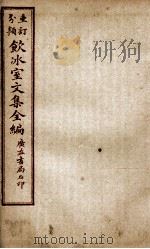 重訂
分類
飲冰室文集全編
廣益書局石印